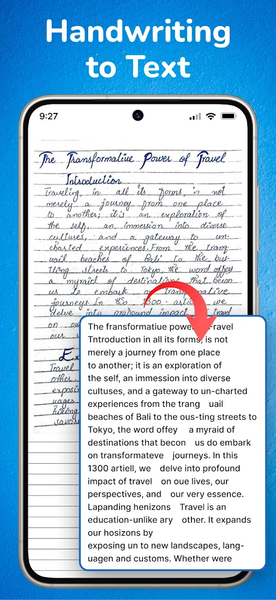 Handwriting
to Text
9:27
The Transformative Power of Travel
Introduction
Traveling, in all its forms, is not
merely a journey from one place
to another; it's an exploration of
the self, an immersion into diverse
cultures, and a gateway to un-
charted experiences. From the tranq
uail beaches of Bali to the bus-
tling streets to Tokyo, the word offey
a myriad of destinations that becon
us to embark on transformative
journeys. In this 1300 article, we
delve into profound impact travel
on
our
Ex
Travel
other
The fransformatiue powe Fravel
Tntroduction in all its forms, is not
merely a journey from one place
to another; it is an exploration of
the self, an immession into diverse
cultures, and a gateway to un-charted
experiences from the trang uail
beaches of Bali to the ous-ting streets to
Tokyo, the word offey a myriad of
destinations that becon us do embark
on transformateve journeys. In this
1300 artiell, we delve into profound
impact of travel on oue lives, our
perspectives, and our very essence.
Lapanding henizons Travel is an
education-unlike ary other. It expands
our hosizons by
exposing un to new landscapes, lang-
uagen and customs. Whether were